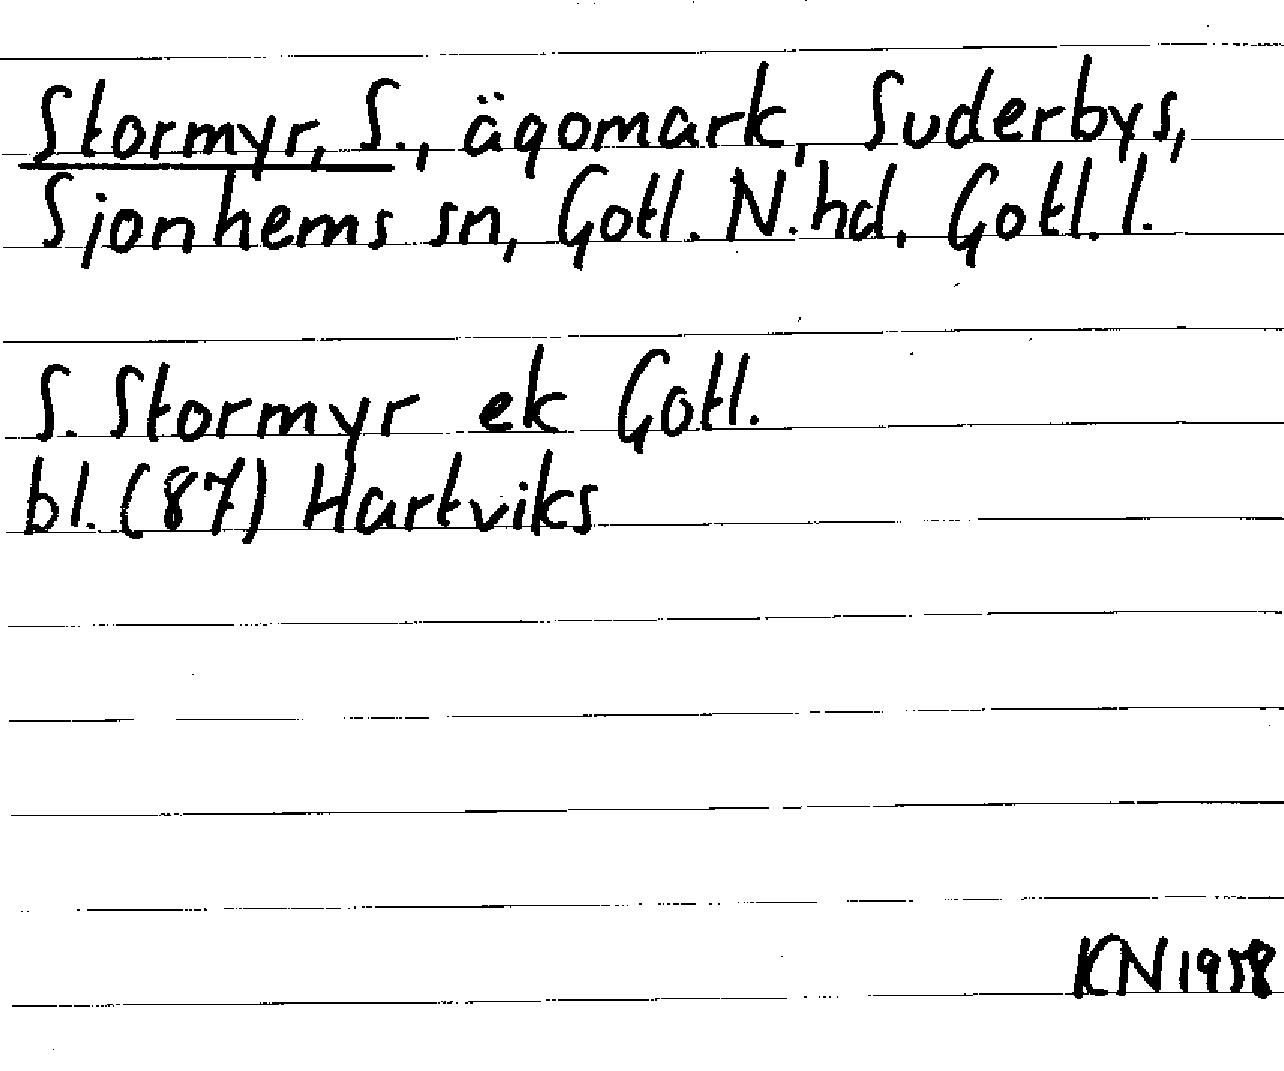 Stormyr, S., ägomark, Suderbys,
Sjonhems sn, Gotl. N. hd, Gotl. l.
S. Stormyr ek Gotl.
bl. (87) Hartviks
KN 1958